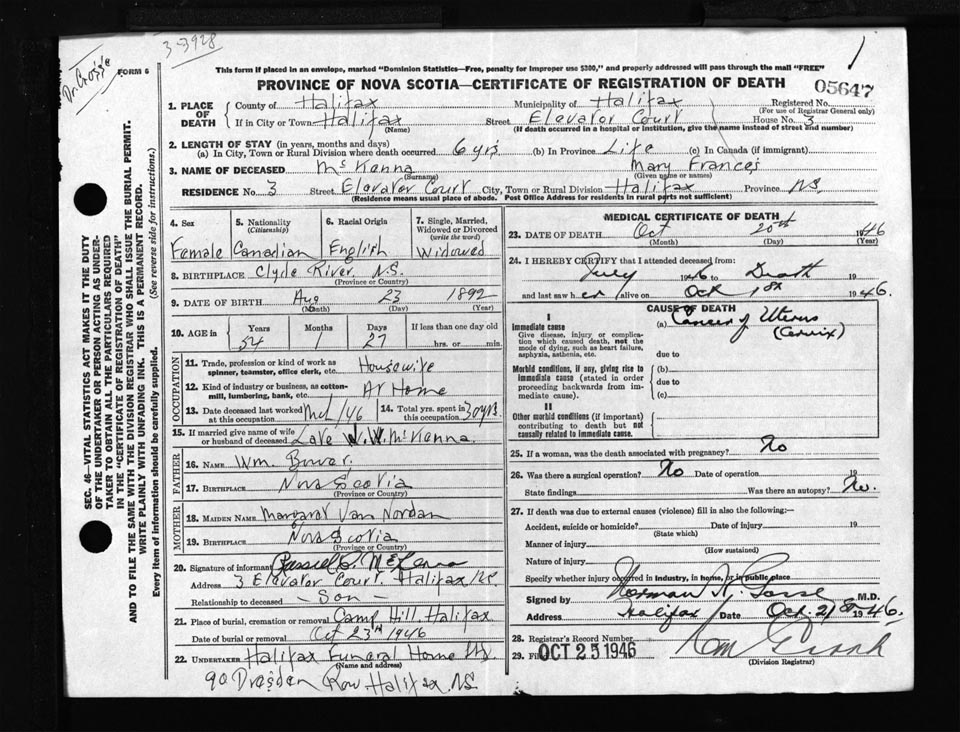 3-3928
Dr. Gosse
FORM 6
This form if placed in an envelope, marked "Dominion Statistics—Free, penalty for improper use $300," and properly addressed will pass through the mail "FREE"
PROVINCE OF NOVA SCOTIA—CERTIFICATE OF REGISTRATION OF DEATH
05647
1. PLACE OF DEATH
County of Halifax Municipality of Halifax Registered No.
(For use of Registrar General only)
If in City or Town Halifax Street Elevator Court House No. 3
(Name) (If death occurred in a hospital or institution, give the name instead of street and number)
2. LENGTH OF STAY (in years, months and days)
(a) In City, Town or Rural Division where death occurred 6 yrs (b) In Province Life (c) In Canada (if immigrant)
3. NAME OF DECEASED McKenna Mary Frances
(Surname) (Given name or names)
RESIDENCE No. 3 Street Elevator Court City, Town or Rural Division Halifax Province N.S.
(Residence means usual place of abode. Post Office Address for residents in rural parts not sufficient)
4. Sex
Female
5. Nationality
(Citizenship)
Canadian
6. Racial Origin
English
7. Single, Married, Widowed or Divorced
(write the word)
Widowed
8. BIRTHPLACE Clyde River, N.S.
(Province or Country)
9. DATE OF BIRTH Aug 23 1892
(Month) (Day) (Year)
10. AGE in Years Months Days If less than one day old
54 1 27 hrs. or min.
OCCUPATION
11. Trade, profession or kind of work as Housewife
spinner, teamster, office clerk, etc.
12. Kind of industry or business, as cotton- At Home
mill, lumbering, bank, etc.
13. Date deceased last worked at this occupation Mch/46
14. Total yrs. spent in this occupation 30 yrs.
15. If married give name of wife or husband of deceased Late W. W. McKenna.
FATHER
16. NAME Wm. Bower.
17. BIRTHPLACE Nova Scotia
(Province or Country)
MOTHER
18. MAIDEN NAME Margaret Van Nordan
19. BIRTHPLACE Nova Scotia
(Province or Country)
20. Signature of informant McKenna
Address 3 Elevator Court. Halifax, N.S.
Relationship to deceased — Son —
21. Place of burial, cremation or removal Camp Hill, Halifax
Date of burial or removal Oct 23rd 1946
22. UNDERTAKER Halifax Funeral Home Ltd.
(Name and address)
90 Dresden Row Halifax, N.S.
MEDICAL CERTIFICATE OF DEATH
23. DATE OF DEATH Oct 20th 1946
(Month) (Day) (Year)
24. I HEREBY CERTIFY that I attended deceased from:
July 1946 to Death 19
and last saw her alive on Oct 1st 1946.
CAUSE OF DEATH
I
Immediate cause
Give disease, injury or complication which caused death, not the mode of dying, such as heart failure, asphyxia, asthenia, etc.
(a) Cancer of Uterus
(Cervix)
due to
Morbid conditions, if any, giving rise to immediate cause (stated in order proceeding backwards from immediate cause).
(b)
due to
(c)
II
Other morbid conditions (if important) contributing to death but not causally related to immediate cause.
25. If a woman, was the death associated with pregnancy? No
26. Was there a surgical operation? No Date of operation 19
State findings Was there an autopsy? No.
27. If death was due to external causes (violence) fill in also the following:—
Accident, suicide or homicide? Date of injury 19
(State which)
Manner of injury
(How sustained)
Nature of injury
Specify whether injury occurred in industry, in home, or in public place
Signed by Norman H. Gosse M.D.
Address Halifax Date Oct. 21 1946.
28. Registrar's Record Number
29. Filed OCT 25 1946
(Division Registrar)
SEC. 46—VITAL STATISTICS ACT MAKES IT THE DUTY
OF THE UNDERTAKER OR PERSON ACTING AS UNDER-
TAKER TO OBTAIN ALL THE PARTICULARS REQUIRED
IN THE "CERTIFICATE OF REGISTRATION OF DEATH"
AND TO FILE THE SAME WITH THE DIVISION REGISTRAR WHO SHALL ISSUE THE BURIAL PERMIT.
WRITE PLAINLY WITH UNFADING INK. THIS IS A PERMANENT RECORD.
Every item of information should be carefully supplied. (See reverse side for instructions.)